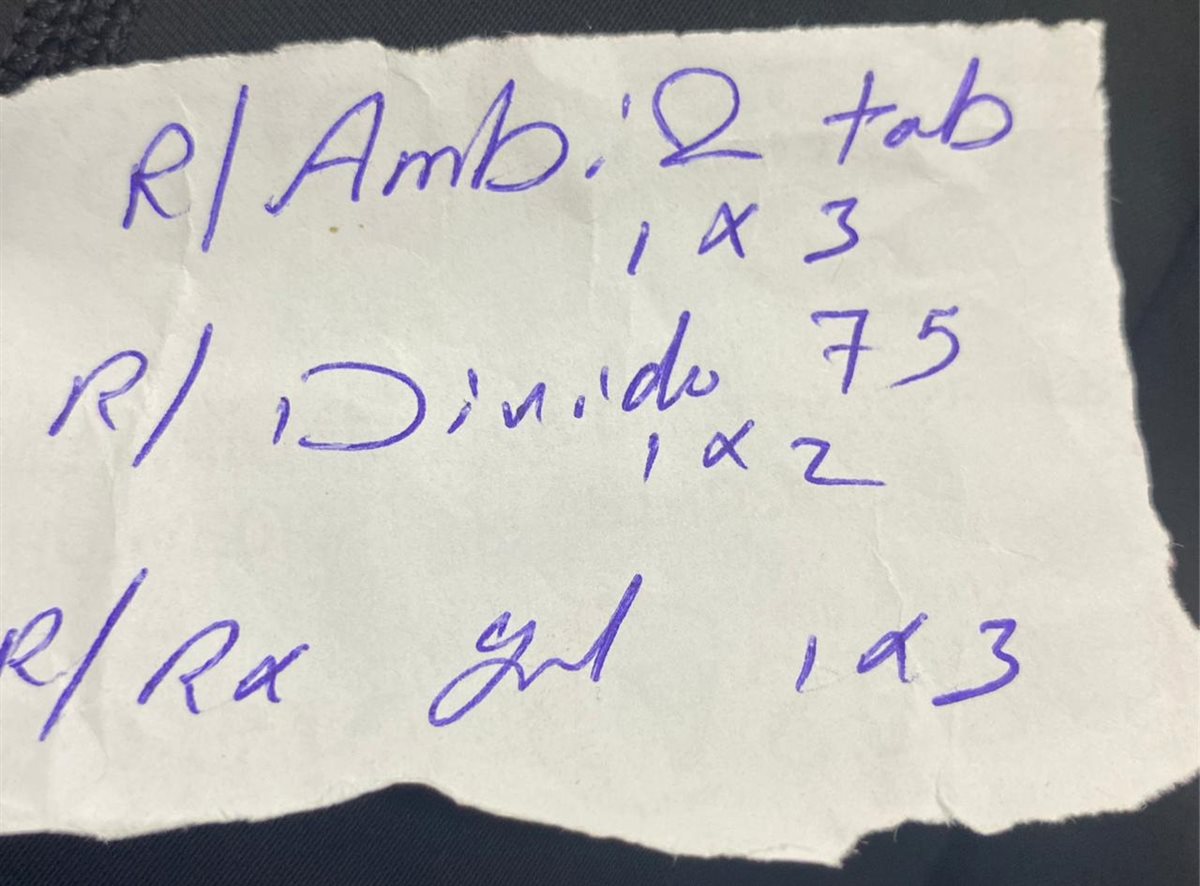 R/ Ambi Ω tab
1 x 3
R/ Divido 75
1 x 2
R/ Rx gel 1 x 3